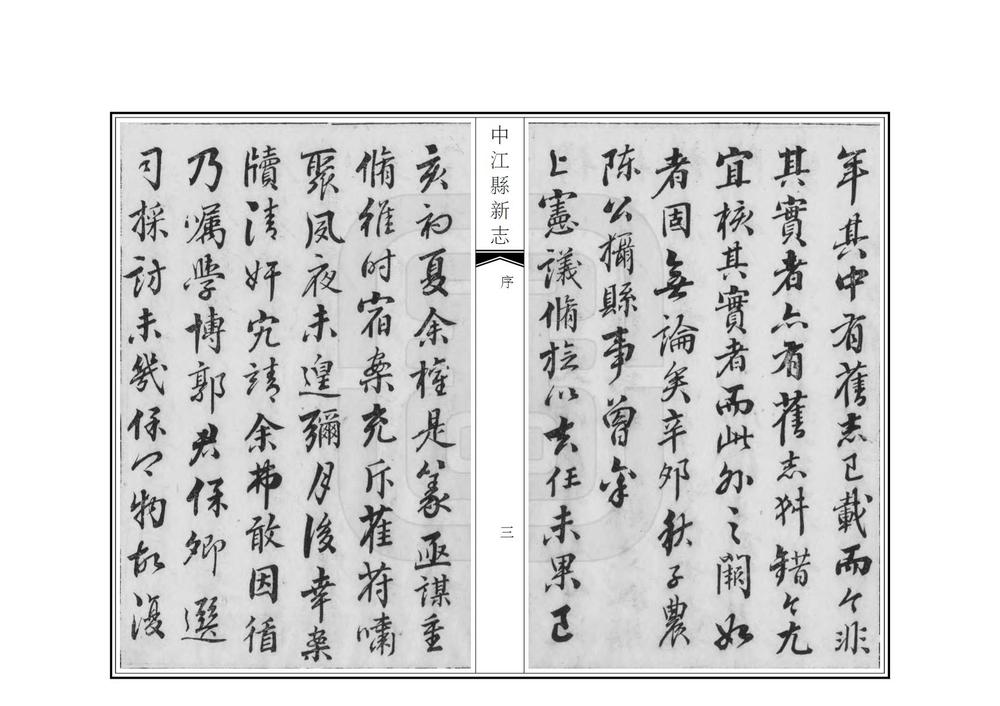 年其中有舊志已載而今非
其實者亦有舊志舛錯今尤
宜核其實者而此外之闕如
者固無論矣辛卯秋子農
陳公攝縣事曾奉
上憲議脩旋以去任未果己
中江縣新志
序
三
亥初夏余權是篆亟謀重
脩維時宿案充斥萑苻嘯
聚夙夜未遑彌月後幸案
牘清奸宄靖余弗敢因循
乃囑學博郭君保卿選
司採訪未幾保卿物故復